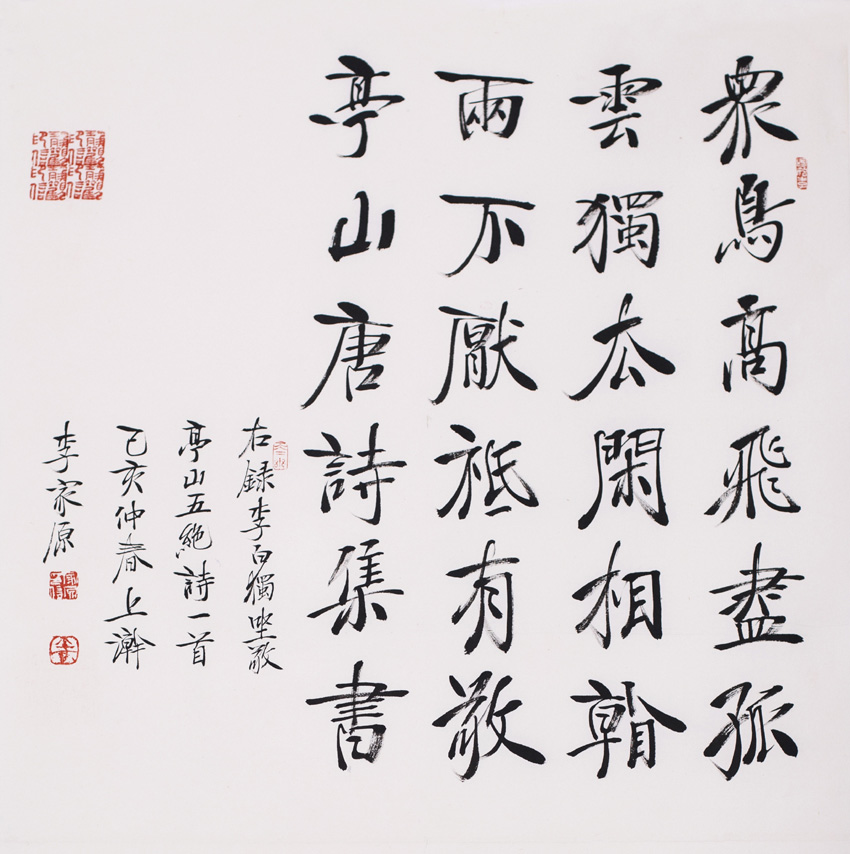 眾鳥高飛盡孤
雲獨去閑相看
兩不厭祗有敬
亭山唐詩集書
右録李白獨坐敬
亭山五絕詩一首
己亥仲春上澣
李家原